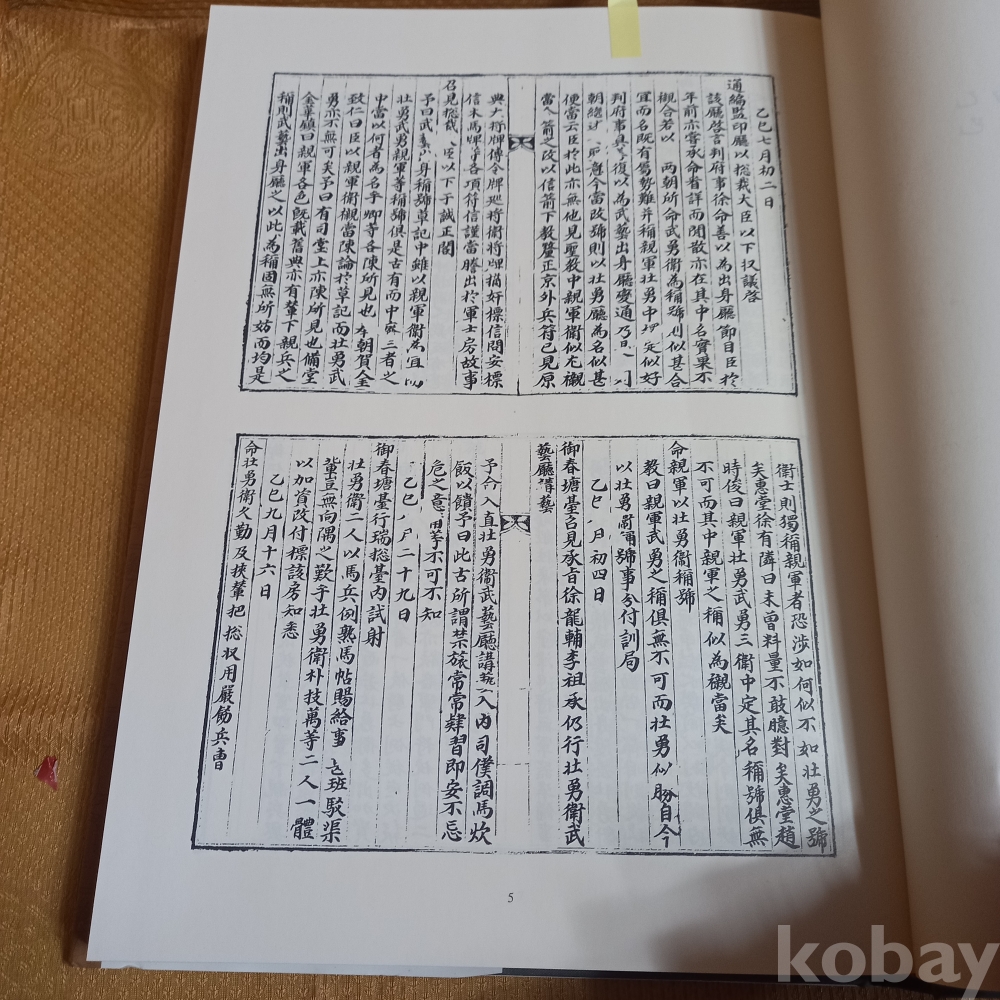 乙巳七月初二日
通編監印廳以總裁大臣以下収議啓
該廳啓言判府事徐命善以為出身廳節目臣於
年前亦嘗承命看詳而閒散亦在其中名實果不
襯合若以 兩朝所命武勇衛為稱號則似甚合
宜而名既有屬勢難并稱親軍壯勇中 定似好
判府事具 復以為武藝出身廳變通乃
朝總 今當改號則以壯勇廳為名似甚
便當云臣於此亦無他見聖教中親軍衛似尤襯
當 箭之改以信箭下教釐正京外兵符已見原
典大將牌傳令牌廵將衛將牌摘奸標信問安標
信木馬牌等各項符信謹當謄出於軍士房故事
召見總裁 臣以下于誠正閤
予曰武藝出身稱號草記中雖以親軍衛為宜
壯勇武勇親軍等稱號俱是古有而中 三者之
中當以何者為名乎卿等各陳所見也 朝賀金
致仁曰臣以親軍衛襯當陳論於草記而壯勇武
勇亦不無可矣予曰有司堂上亦陳所見也備堂
金華鎭曰親軍各色既載舊典亦有輦下親兵之
稱則武藝出身廳之以此為稱固無所妨而均是
衛士則獨稱親軍者恐涉如何似不如壯勇之號
矣惠堂徐有隣曰未曾料量不敢臆對矣惠堂趙
時俊曰親軍壯勇武勇三衛中定其名稱號俱無
不可而其中親軍之稱似為襯當矣
命親軍以壯勇衛稱號
教曰親軍武勇之稱俱無不可而壯勇似勝自今
以壯勇衛爾號事分付訓局
乙巳 月初四日
御春塘臺召見承旨徐龍輔李祖承仍行壯勇衛武
藝廳講藝
予今入直壯勇衛武藝廳講藝入內司僕調馬炊
飯以饋予曰此古所謂禁旅常常肄習即安不忘
危之意 等不可不知
乙巳 月二十九日
御春塘臺行瑞總臺內試射
壯勇衛二人以馬兵例熟馬帖賜給事 班駁渠
輩豈無向隅之歎乎壯勇衛朴技萬等二人一體
以加資改付標該房知悉
乙巳九月十六日
命壯勇衛久勤及挾輦把總収用嚴飭兵曹
5
kobay